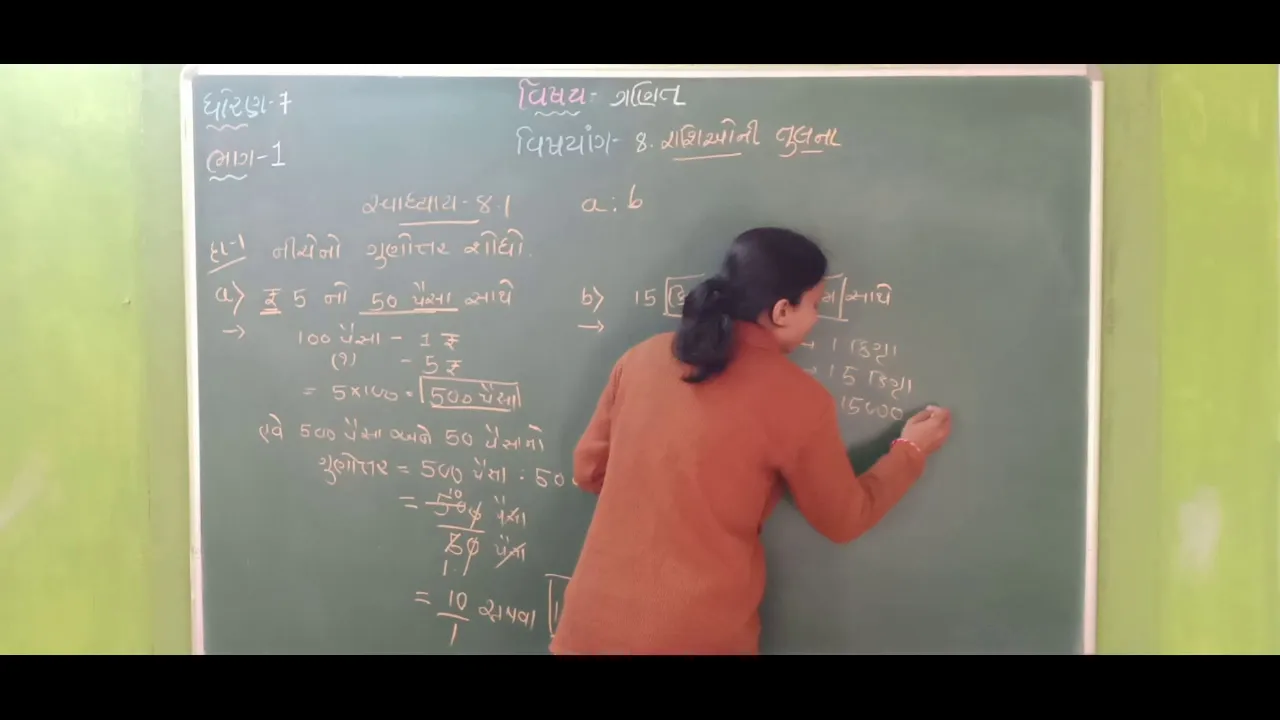 ધોરણ-7
વિષય- ગણિત
ભાગ-1
વિષયાંગ- 8. રાશિઓની તુલના
સ્વાધ્યાય-8.1
a : b
દા-1 નીચેનો ગુણોત્તર શોધો.
a) ₹ 5 નો 50 પૈસા સાથે
→
100 પૈસા - 1 ₹
(?) - 5 ₹
= 5×100 = 500 પૈસા
હવે 500 પૈસા અને 50 પૈસાનો
ગુણોત્તર = 500 પૈસા : 50
= 500 પૈસા
10
50 પૈસા
1
= 10
1
અથવા
b) 15 સાથે
→
1 કિગ્રા
15 કિગ્રા
15000